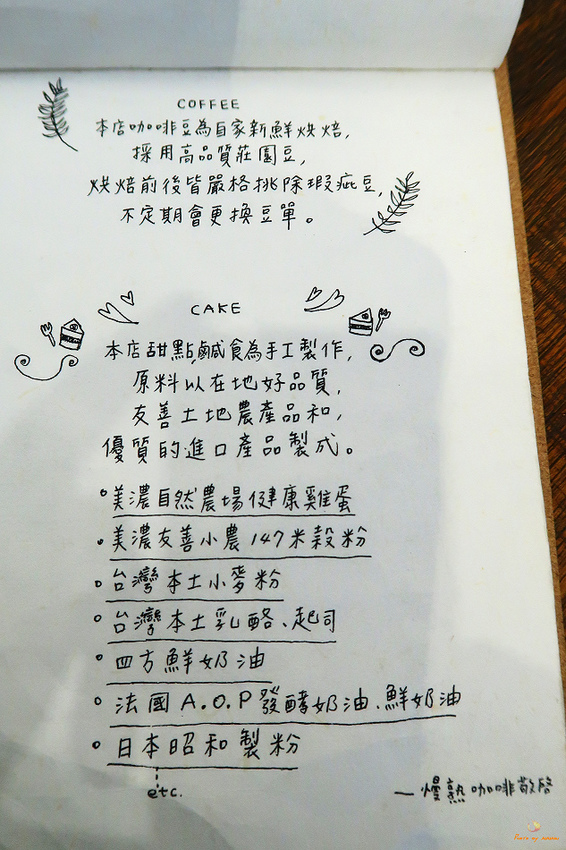 COFFEE
本店咖啡豆為自家新鮮烘焙,
採用高品質莊園豆,
烘焙前後皆嚴格挑除瑕疵豆,
不定期會更換豆單。
CAKE
本店甜點,鹹食為手工製作,
原料以在地好品質,
友善土地農產品和,
優質的進口產品製成。
美濃自然農場健康雞蛋
美濃友善小農147米穀粉
台灣本土小麥粉
台灣本土乳酪、起司
四方鮮奶油
法國A.O.P發酵奶油、鮮奶油
日本昭和製粉
etc.
—慢熟咖啡敬啓